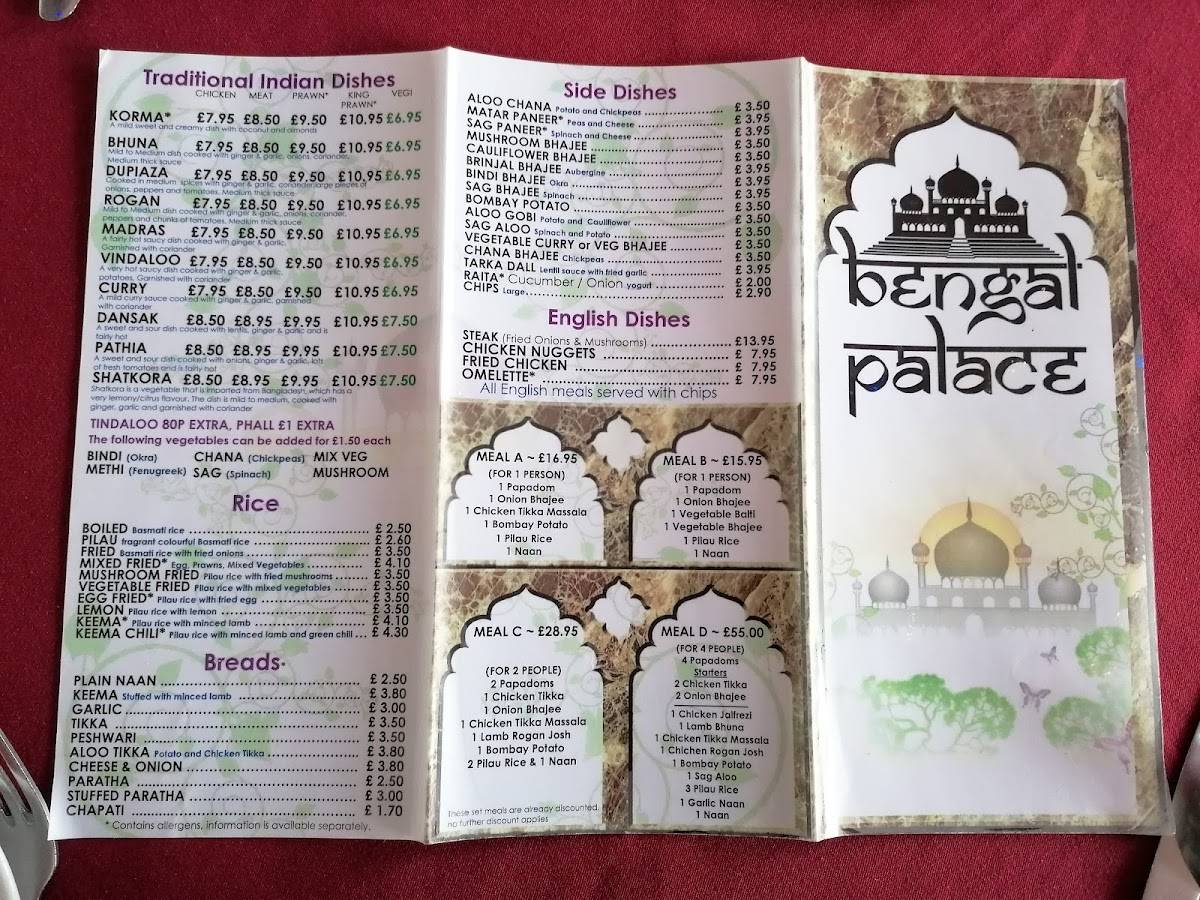 Traditional Indian Dishes
CHICKEN MEAT PRAWN* KING PRAWN* VEGI
KORMA* £7.95 £8.50 £9.50 £10.95 £6.95
A mild sweet and creamy dish with coconut and almonds
BHUNA £7.95 £8.50 £9.50 £10.95 £6.95
Mild to Medium dish cooked with ginger & garlic, onions, coriander,
Medium thick sauce
DUPIAZA £7.95 £8.50 £9.50 £10.95 £6.95
Cooked in medium spices with ginger & garlic, coriander,large pieces of
onions, peppers and tomatoes. Medium thick sauce
ROGAN £7.95 £8.50 £9.50 £10.95 £6.95
Mild to Medium dish cooked with ginger & garlic, onions, coriander,
peppers and chunks of tomatoes. Medium thick sauce
MADRAS £7.95 £8.50 £9.50 £10.95 £6.95
A fairly hot saucy dish cooked with ginger & garlic.
Garnished with coriander
VINDALOO £7.95 £8.50 £9.50 £10.95 £6.95
A very hot saucy dish cooked with ginger & garlic,
potatoes. Garnished with coriander
CURRY £7.95 £8.50 £9.50 £10.95 £6.95
A mild curry sauce cooked with ginger & garlic, garnished
with coriander
DANSAK £8.50 £8.95 £9.95 £10.95 £7.50
A sweet and sour dish cooked with lentils, ginger & garlic and is
fairly hot
PATHIA £8.50 £8.95 £9.95 £10.95 £7.50
A sweet and sour dish cooked with onions, ginger & garlic, lots
of fresh tomatoes and is fairly hot
SHATKORA £8.50 £8.95 £9.95 £10.95 £7.50
Shatkora is a vegetable that is imported from Bangladesh, which has a
very lemony/citrus flavour. The dish is mild to medium, cooked with
ginger, garlic and garnished with coriander
TINDALOO 80P EXTRA, PHALL £1 EXTRA
The following vegetables can be added for £1.50 each
BINDI (Okra) CHANA (Chickpeas) MIX VEG
METHI (Fenugreek) SAG (Spinach) MUSHROOM
Rice
BOILED Basmati rice £ 2.50
PILAU fragrant colourful Basmati rice £ 2.60
FRIED Basmati rice with fried onions £ 3.50
MIXED FRIED* Egg, Prawns, Mixed Vegetables £ 4.10
MUSHROOM FRIED Pilau rice with fried mushrooms £ 3.50
VEGETABLE FRIED Pilau rice with mixed vegetables £ 3.50
EGG FRIED* Pilau rice with fried egg £ 3.50
LEMON Pilau rice with lemon £ 3.50
KEEMA* Pilau rice with minced lamb £ 4.10
KEEMA CHILI* Pilau rice with minced lamb and green chili £ 4.30
Breads*
PLAIN NAAN £ 2.50
KEEMA Stuffed with minced lamb £ 3.80
GARLIC £ 3.00
TIKKA £ 3.50
PESHWARI £ 3.50
ALOO TIKKA Potato and Chicken Tikka £ 3.80
CHEESE & ONION £ 3.80
PARATHA £ 2.50
STUFFED PARATHA £ 3.00
CHAPATI £ 1.70
* Contains allergens, information is available separately.
Side Dishes
ALOO CHANA Potato and Chickpeas £ 3.50
MATAR PANEER* Peas and Cheese £ 3.95
SAG PANEER* Spinach and Cheese £ 3.95
MUSHROOM BHAJEE £ 3.50
CAULIFLOWER BHAJEE £ 3.50
BRINJAL BHAJEE Aubergine £ 3.95
BINDI BHAJEE Okra £ 3.95
SAG BHAJEE Spinach £ 3.95
BOMBAY POTATO £ 3.50
ALOO GOBI Potato and Cauliflower £ 3.50
SAG ALOO Spinach and Potato £ 3.50
VEGETABLE CURRY or VEG BHAJEE £ 3.50
CHANA BHAJEE Chickpeas £ 3.50
TARKA DALL Lentil sauce with fried garlic £ 3.95
RAITA* Cucumber / Onion yogurt £ 2.00
CHIPS Large £ 2.90
English Dishes
STEAK (Fried Onions & Mushrooms) £13.95
CHICKEN NUGGETS £ 7.95
FRIED CHICKEN £ 7.95
OMELETTE* £ 7.95
All English meals served with chips
MEAL A ~ £16.95
(FOR 1 PERSON)
1 Papadom
1 Onion Bhajee
1 Chicken Tikka Massala
1 Bombay Potato
1 Pilau Rice
1 Naan
MEAL B ~ £15.95
(FOR 1 PERSON)
1 Papadom
1 Onion Bhajee
1 Vegetable Balti
1 Vegetable Bhajee
1 Pilau Rice
1 Naan
MEAL C ~ £28.95
(FOR 2 PEOPLE)
2 Papadoms
1 Chicken Tikka
1 Onion Bhajee
1 Chicken Tikka Massala
1 Lamb Rogan Josh
1 Bombay Potato
2 Pilau Rice & 1 Naan
These set meals are already discounted,
no further discount applies
MEAL D ~ £55.00
(FOR 4 PEOPLE)
4 Papadoms
Starters
2 Chicken Tikka
2 Onion Bhajee
1 Chicken Jalfrezi
1 Lamb Bhuna
1 Chicken Tikka Massala
1 Chichen Rogan Josh
1 Bombay Potato
1 Sag Aloo
3 Pilau Rice
1 Garlic Naan
1 Naan
bengal
palace